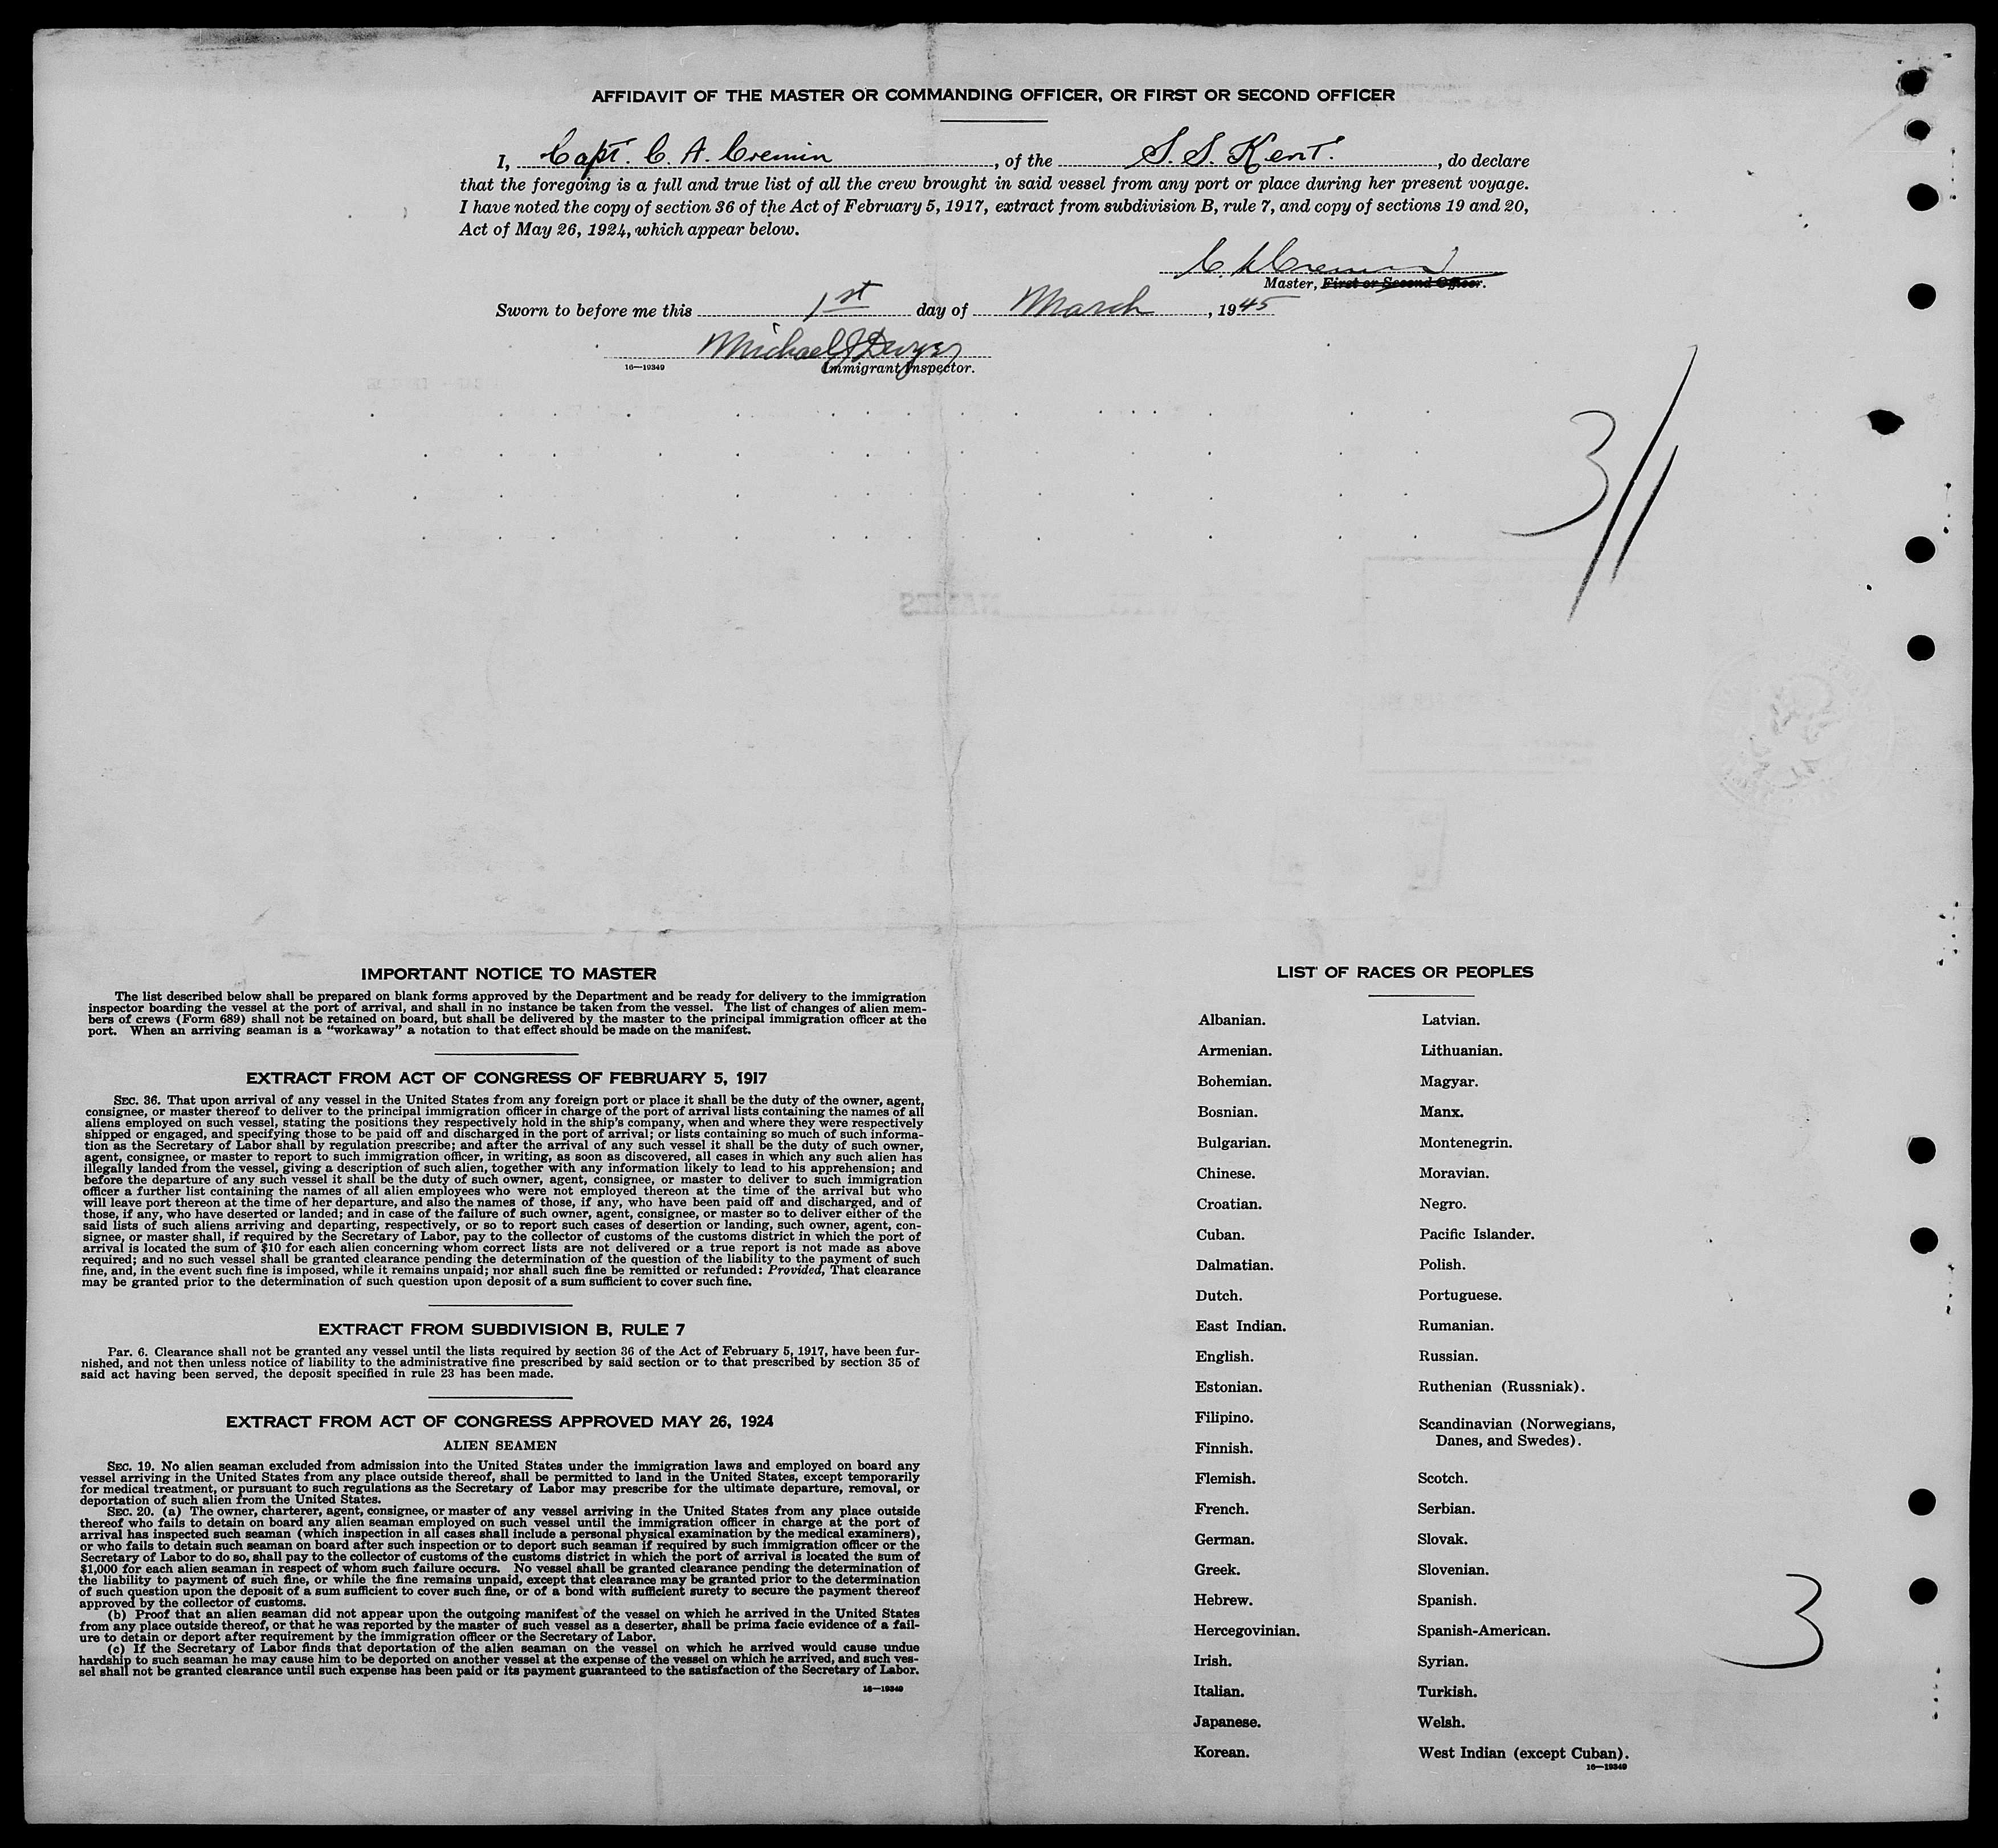 AFFIDAVIT OF THE MASTER OR COMMANDING OFFICER, OR FIRST OR SECOND OFFICER
I, Capt. C. A. Cremin, of the S. S. Kent., do declare
that the foregoing is a full and true list of all the crew brought in said vessel from any port or place during her present voyage.
I have noted the copy of section 36 of the Act of February 5, 1917, extract from subdivision B, rule 7, and copy of sections 19 and 20,
Act of May 26, 1924, which appear below.
C. A. Cremin
Master, First or Second Officer.
Sworn to before me this 1st day of March, 1945
Michael J Dwyer
16—19349 Immigrant Inspector.
3/1
IMPORTANT NOTICE TO MASTER
The list described below shall be prepared on blank forms approved by the Department and be ready for delivery to the immigration
inspector boarding the vessel at the port of arrival, and shall in no instance be taken from the vessel. The list of changes of alien mem-
bers of crews (Form 689) shall not be retained on board, but shall be delivered by the master to the principal immigration officer at the
port. When an arriving seaman is a "workaway" a notation to that effect should be made on the manifest.
EXTRACT FROM ACT OF CONGRESS OF FEBRUARY 5, 1917
SEC. 36. That upon arrival of any vessel in the United States from any foreign port or place it shall be the duty of the owner, agent,
consignee, or master thereof to deliver to the principal immigration officer in charge of the port of arrival lists containing the names of all
aliens employed on such vessel, stating the positions they respectively hold in the ship's company, when and where they were respectively
shipped or engaged, and specifying those to be paid off and discharged in the port of arrival; or lists containing so much of such informa-
tion as the Secretary of Labor shall by regulation prescribe; and after the arrival of any such vessel it shall be the duty of such owner,
agent, consignee, or master to report to such immigration officer, in writing, as soon as discovered, all cases in which any such alien has
illegally landed from the vessel, giving a description of such alien, together with any information likely to lead to his apprehension; and
before the departure of any such vessel it shall be the duty of such owner, agent, consignee, or master to deliver to such immigration
officer a further list containing the names of all alien employees who were not employed thereon at the time of the arrival but who
will leave port thereon at the time of her departure, and also the names of those, if any, who have been paid off and discharged, and of
those, if any, who have deserted or landed; and in case of the failure of such owner, agent, consignee, or master so to deliver either of the
said lists of such aliens arriving and departing, respectively, or so to report such cases of desertion or landing, such owner, agent, con-
signee, or master shall, if required by the Secretary of Labor, pay to the collector of customs of the customs district in which the port of
arrival is located the sum of $10 for each alien concerning whom correct lists are not delivered or a true report is not made as above
required; and no such vessel shall be granted clearance pending the determination of the question of the liability to the payment of such
fine, and, in the event such fine is imposed, while it remains unpaid; nor shall such fine be remitted or refunded: Provided, That clearance
may be granted prior to the determination of such question upon deposit of a sum sufficient to cover such fine.
EXTRACT FROM SUBDIVISION B, RULE 7
Par. 6. Clearance shall not be granted any vessel until the lists required by section 36 of the Act of February 5, 1917, have been fur-
nished, and not then unless notice of liability to the administrative fine prescribed by said section or to that prescribed by section 35 of
said act having been served, the deposit specified in rule 23 has been made.
EXTRACT FROM ACT OF CONGRESS APPROVED MAY 26, 1924
ALIEN SEAMEN
SEC. 19. No alien seaman excluded from admission into the United States under the immigration laws and employed on board any
vessel arriving in the United States from any place outside thereof, shall be permitted to land in the United States, except temporarily
for medical treatment, or pursuant to such regulations as the Secretary of Labor may prescribe for the ultimate departure, removal, or
deportation of such alien from the United States.
SEC. 20. (a) The owner, charterer, agent, consignee, or master of any vessel arriving in the United States from any place outside
thereof who fails to detain on board any alien seaman employed on such vessel until the immigration officer in charge at the port of
arrival has inspected such seaman (which inspection in all cases shall include a personal physical examination by the medical examiners),
or who fails to detain such seaman on board after such inspection or to deport such seaman if required by such immigration officer or the
Secretary of Labor to do so, shall pay to the collector of customs of the customs district in which the port of arrival is located the sum of
$1,000 for each alien seaman in respect of whom such failure occurs. No vessel shall be granted clearance pending the determination of
the liability to payment of such fine, or while the fine remains unpaid, except that clearance may be granted prior to the determination
of such question upon the deposit of a sum sufficient to cover such fine, or of a bond with sufficient surety to secure the payment thereof
approved by the collector of customs.
(b) Proof that an alien seaman did not appear upon the outgoing manifest of the vessel on which he arrived in the United States
from any place outside thereof, or that he was reported by the master of such vessel as a deserter, shall be prima facie evidence of a fail-
ure to detain or deport after requirement by the immigration officer or the Secretary of Labor.
(c) If the Secretary of Labor finds that deportation of the alien seaman on the vessel on which he arrived would cause undue
hardship to such seaman he may cause him to be deported on another vessel at the expense of the vessel on which he arrived, and such ves-
sel shall not be granted clearance until such expense has been paid or its payment guaranteed to the satisfaction of the Secretary of Labor.
16—19349
LIST OF RACES OR PEOPLES
Albanian.
Armenian.
Bohemian.
Bosnian.
Bulgarian.
Chinese.
Croatian.
Cuban.
Dalmatian.
Dutch.
East Indian.
English.
Estonian.
Filipino.
Finnish.
Flemish.
French.
German.
Greek.
Hebrew.
Hercegovinian.
Irish.
Italian.
Japanese.
Korean.
Latvian.
Lithuanian.
Magyar.
Manx.
Montenegrin.
Moravian.
Negro.
Pacific Islander.
Polish.
Portuguese.
Rumanian.
Russian.
Ruthenian (Russniak).
Scandinavian (Norwegians,
Danes, and Swedes).
Scotch.
Serbian.
Slovak.
Slovenian.
Spanish.
Spanish-American.
Syrian.
Turkish.
Welsh.
West Indian (except Cuban).
16—19349
3